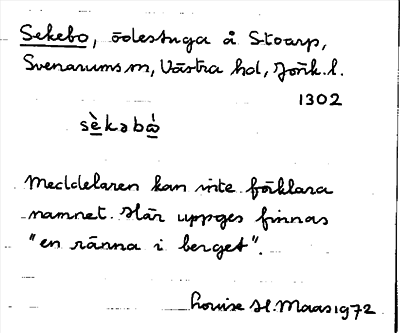 Sekebo, ödestuga å Stoarp,
Svenarums sn, Västra hd, Jönk. l.
1302
sèkəbò̤
Meddelaren kan inte förklara
namnet. Här uppges finnas
"en ränna i berget".
Louise H. Maas 1972